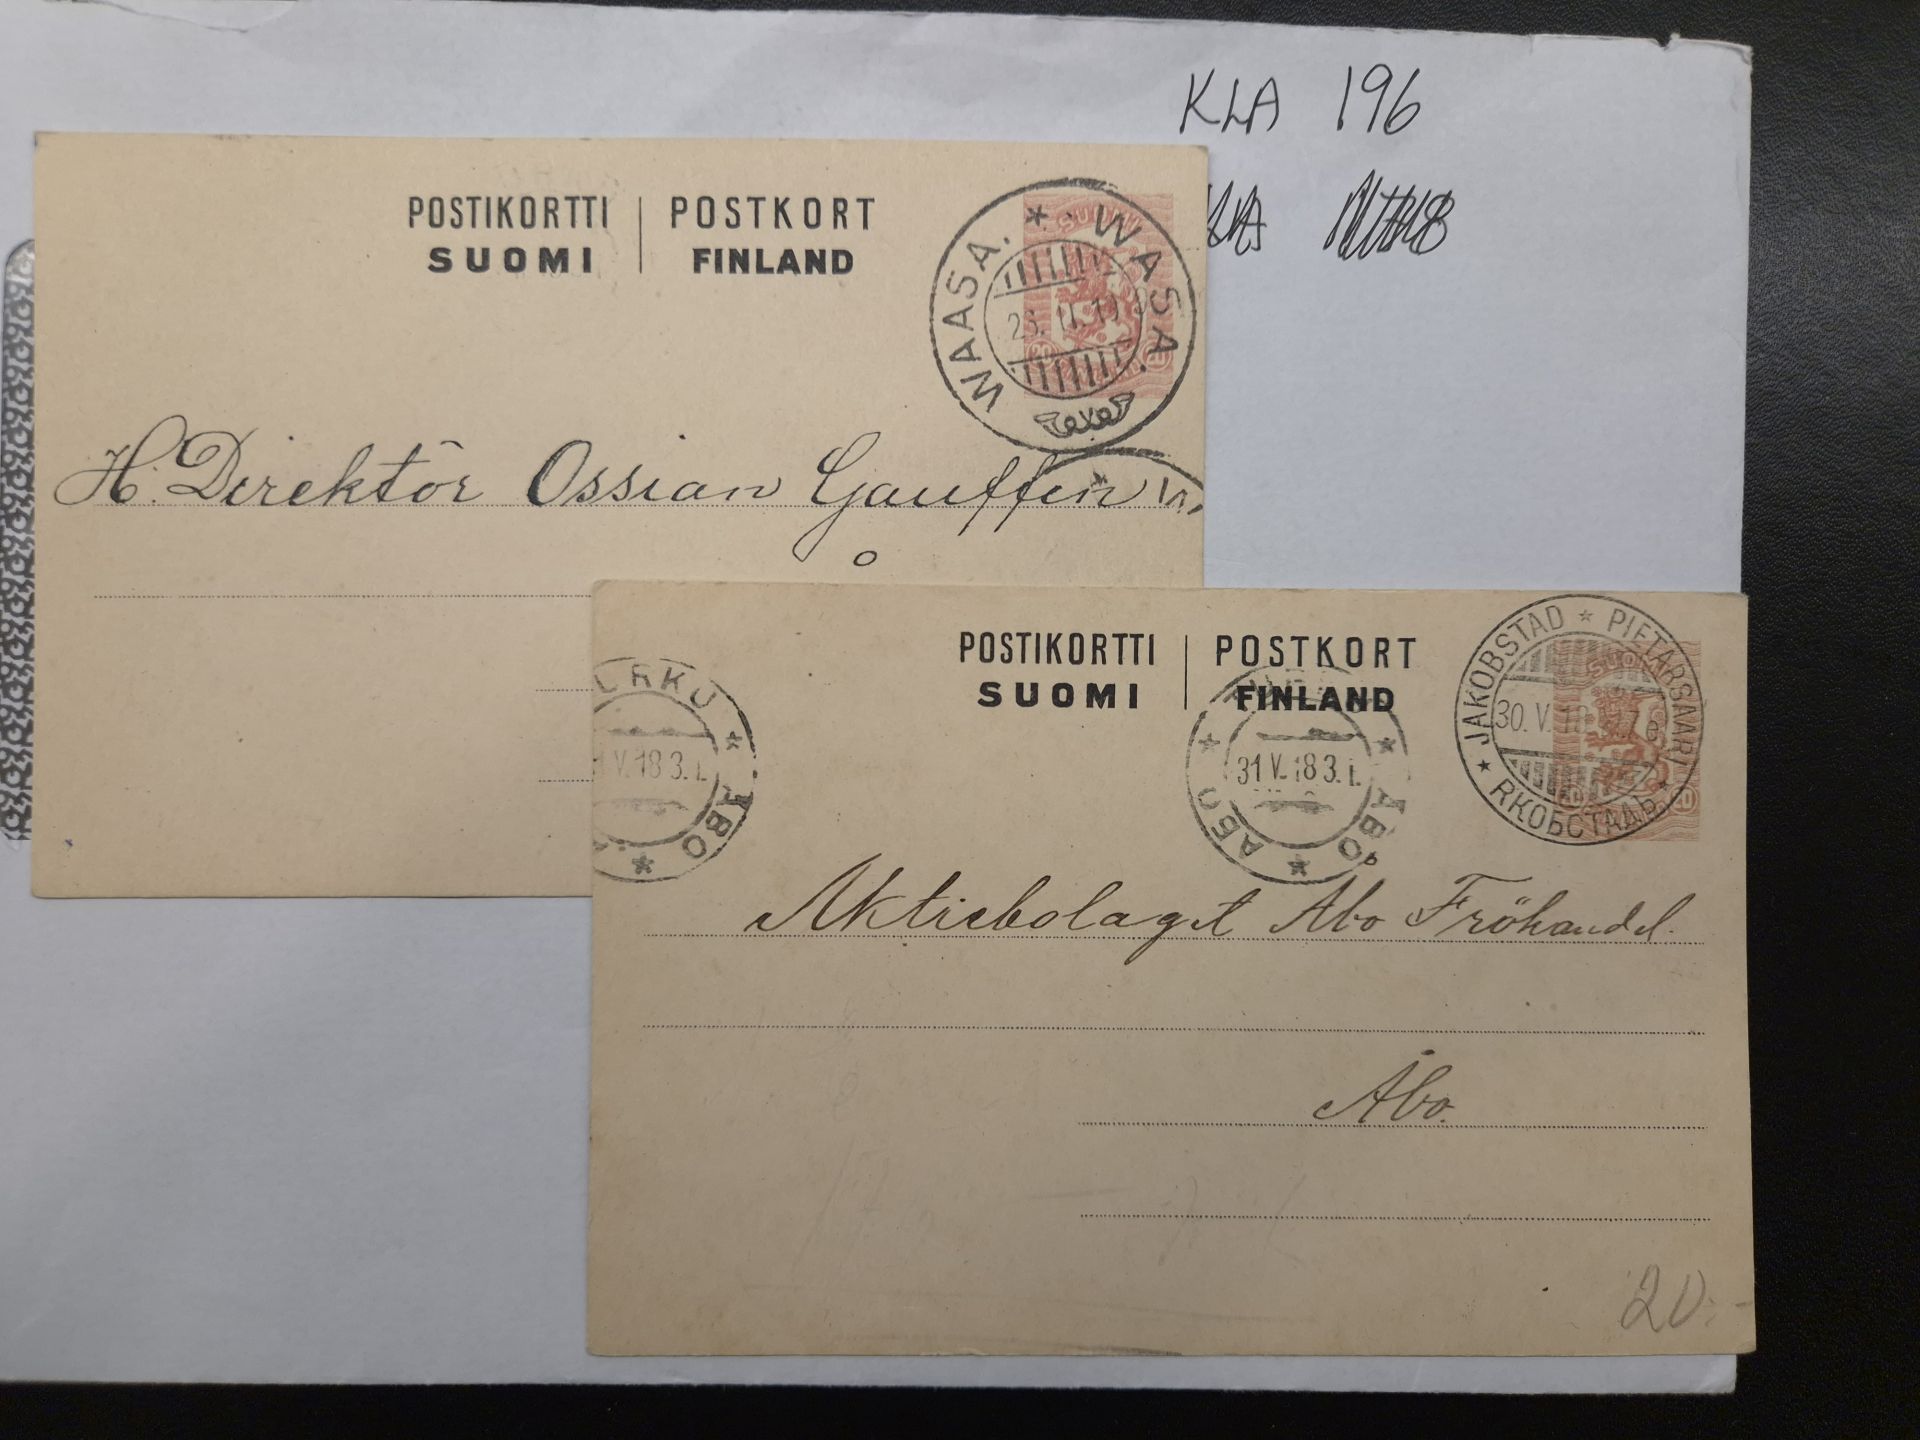 KLA 196
POSTIKORTTI | POSTKORT
SUOMI | FINLAND
WAASA. * WASA.
SUOMI
20 20
H. Direktör Ossian Gauffin
POSTIKORTTI | POSTKORT
SUOMI | FINLAND
JAKOBSTAD * PIETARSAARI * ЯКОБСТАДЪ *
30. V. 18
SUOMI
20
TURKU * ÅBO *
V. 18 3. I.
* ÅBO * АБО *
31 V. 18 3. I.
Aktiebolaget Åbo Fröhandel.
Åbo.
20:-